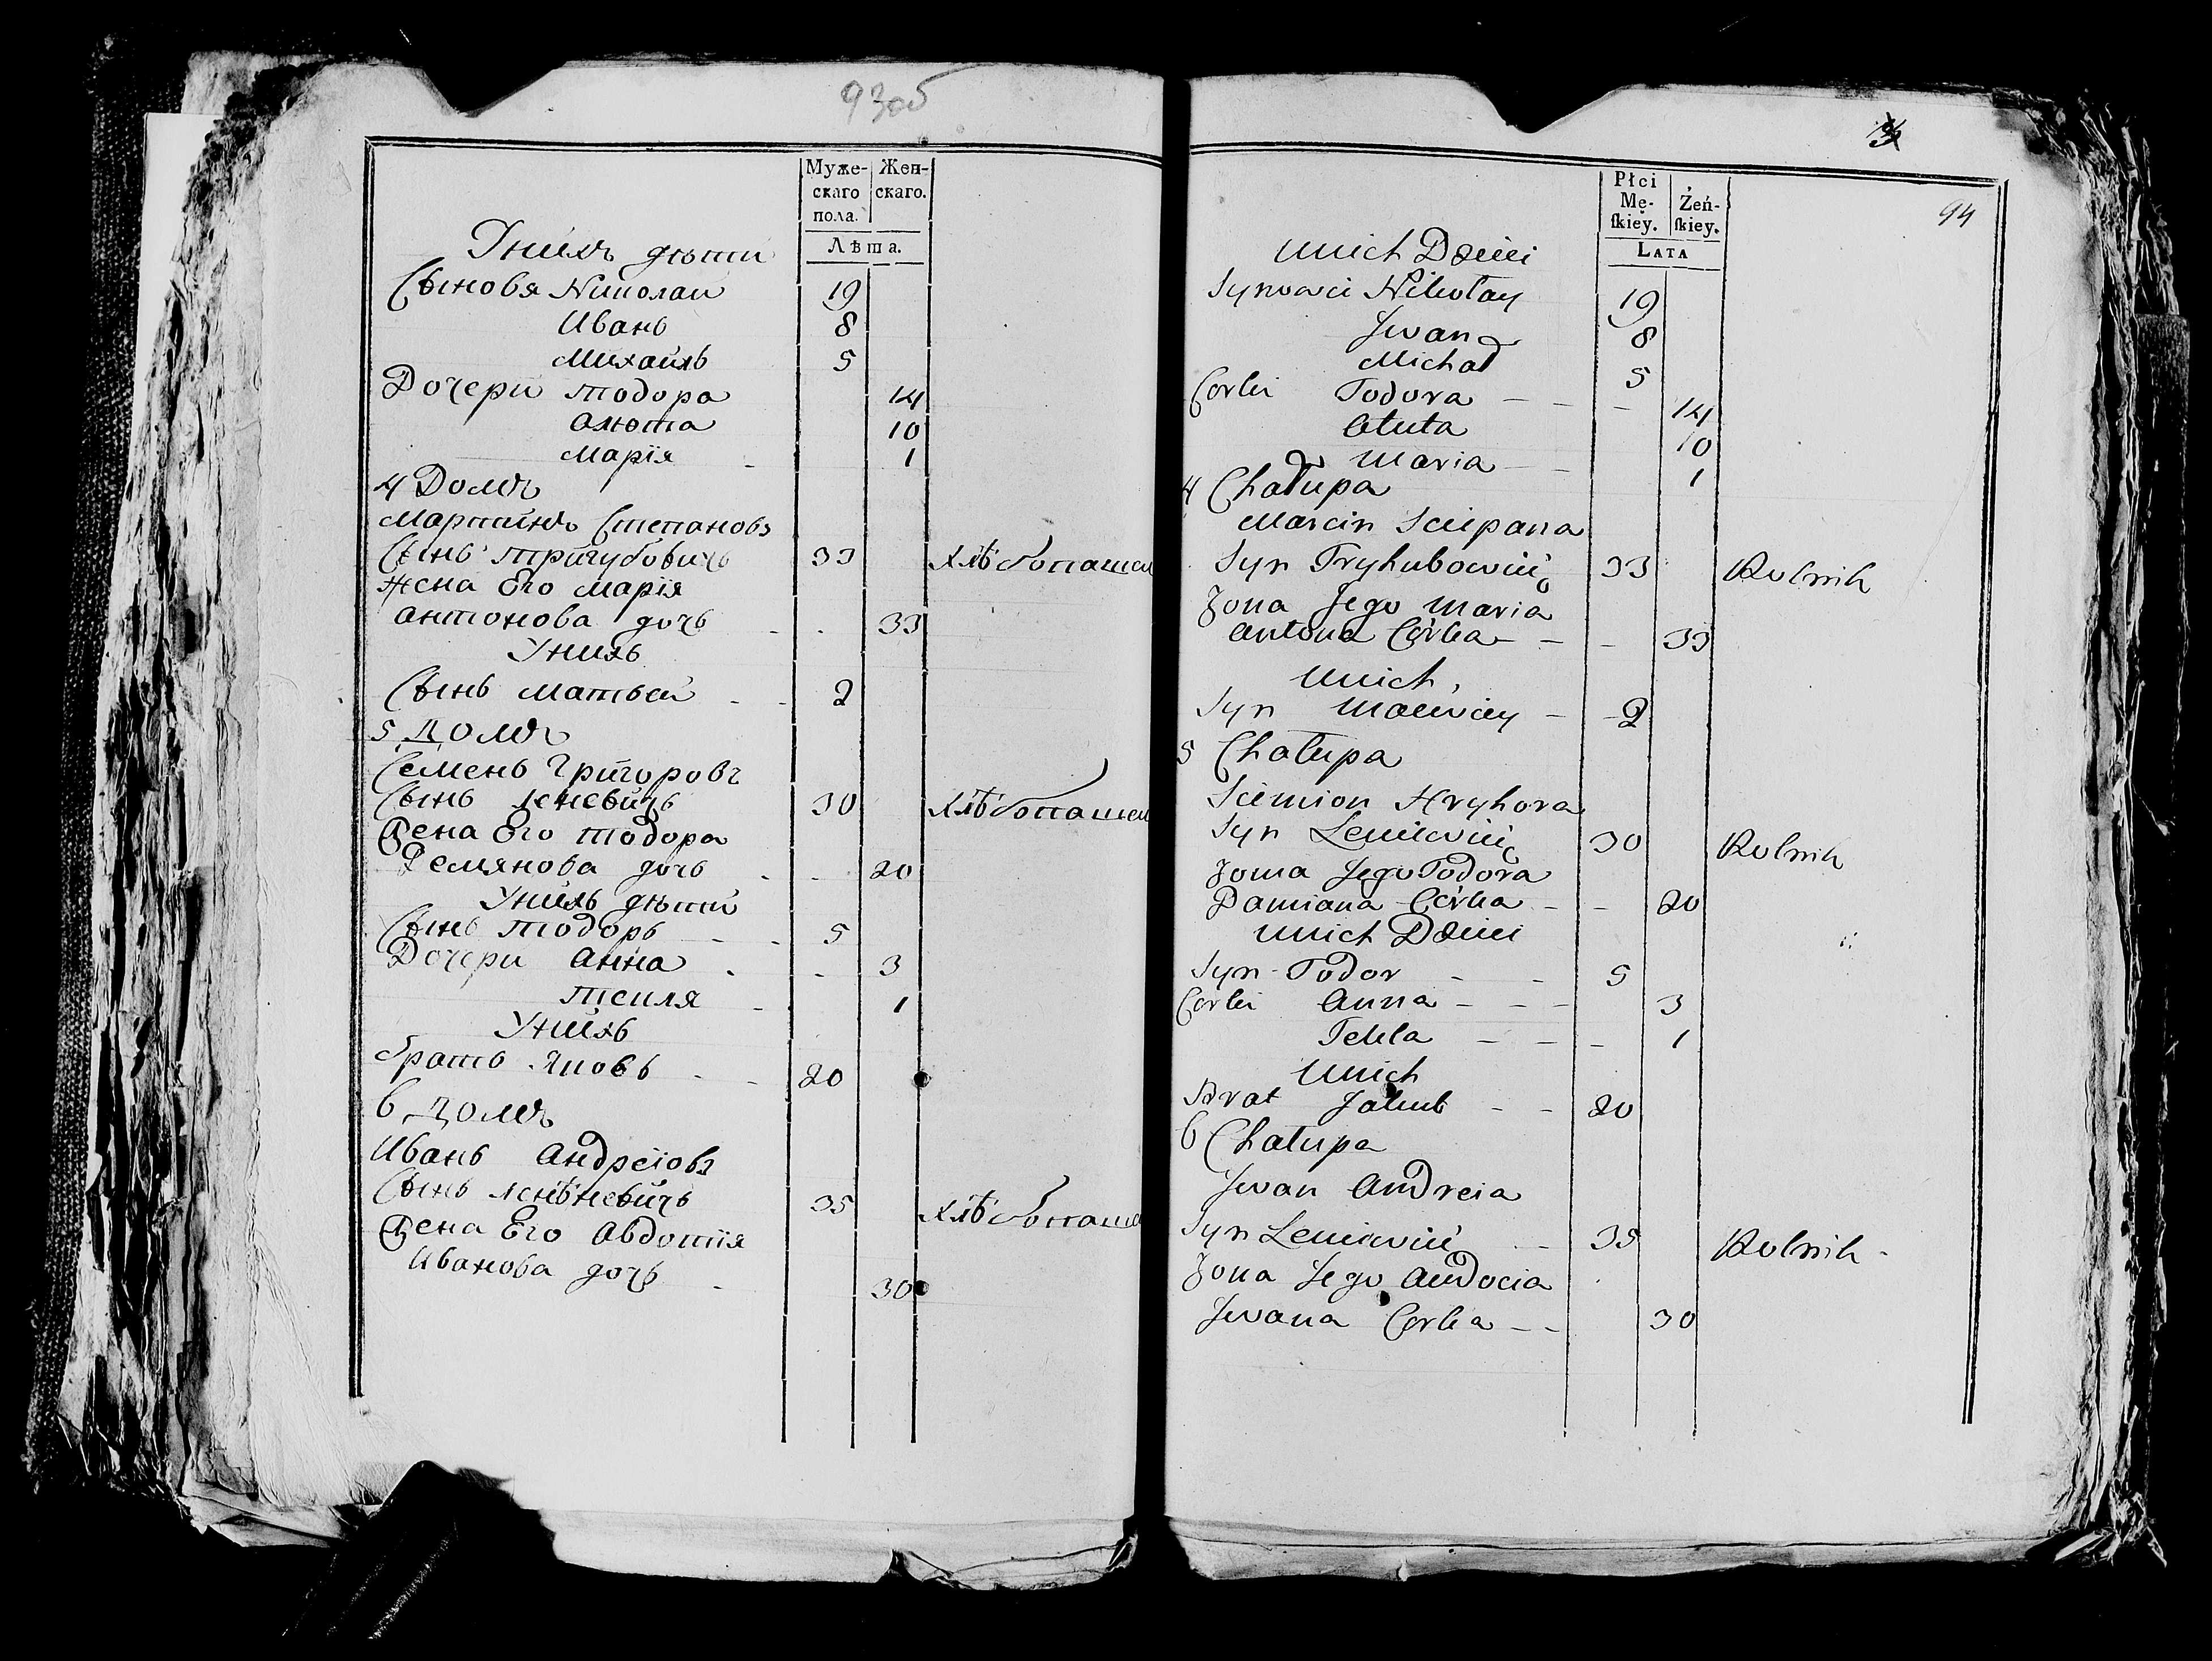 93об
Муже-
скаго
пола.
Жен-
скаго.
Лѣта.
Унихъ дѣти
Сыновя Николай 19
Иванъ 8
Михайлъ 5
Дочери Тодора 14
Алюта 10
Марія 1
4 Домъ
Мартинъ Степановъ
Сынъ Тригубовичъ 33 Хлѣбопашец
Жена Его Марія
Антонова дочь 33
Унихъ
Сынъ Матвей 2
5 Домъ
Семенъ Григоровъ
Сынъ Леневичъ 30 Хлѣбопашец
Жена Его Тодора
Демянова дочь 20
Унихъ дѣти
Сынъ Тодоръ 5
Дочери Анна 3
Текля 1
Унихъ
братъ Яковъ 20
6 Домъ
Иванъ Андреіовъ
Сынъ Ленѣневичъ 35 Хлѣбопаше
Жена Его Авдотія
Иванова дочь 30
94
Płci
Mę-
skiey.
Żeń-
skiey.
LATA
Unich Dzieci
Synowie Nikołay 19
Jwan 8
Michał 5
Corki Todora 14
Aluta 10
Maria 1
4 Chałupa
Marcin Sciepana
Syn Tryhubowicz 33 Rolnik
Zona Jego Maria
Antona Córka 33
Unich
Syn Maciwiey 2
5 Chałupa
Siemion Hryhora
Syn Leniewicz 30 Rolnik
Zona Jego Todora
Damiana Córka 20
Unich Dzieci
Syn Todor 5
Corki Anna 3
Tekla 1
Unich
Brat Jakub 20
6 Chałupa
Jwan Andreia
Syn Leniewicz 35 Rolnik
Zona Jego Audocia
Jwana Corka 30